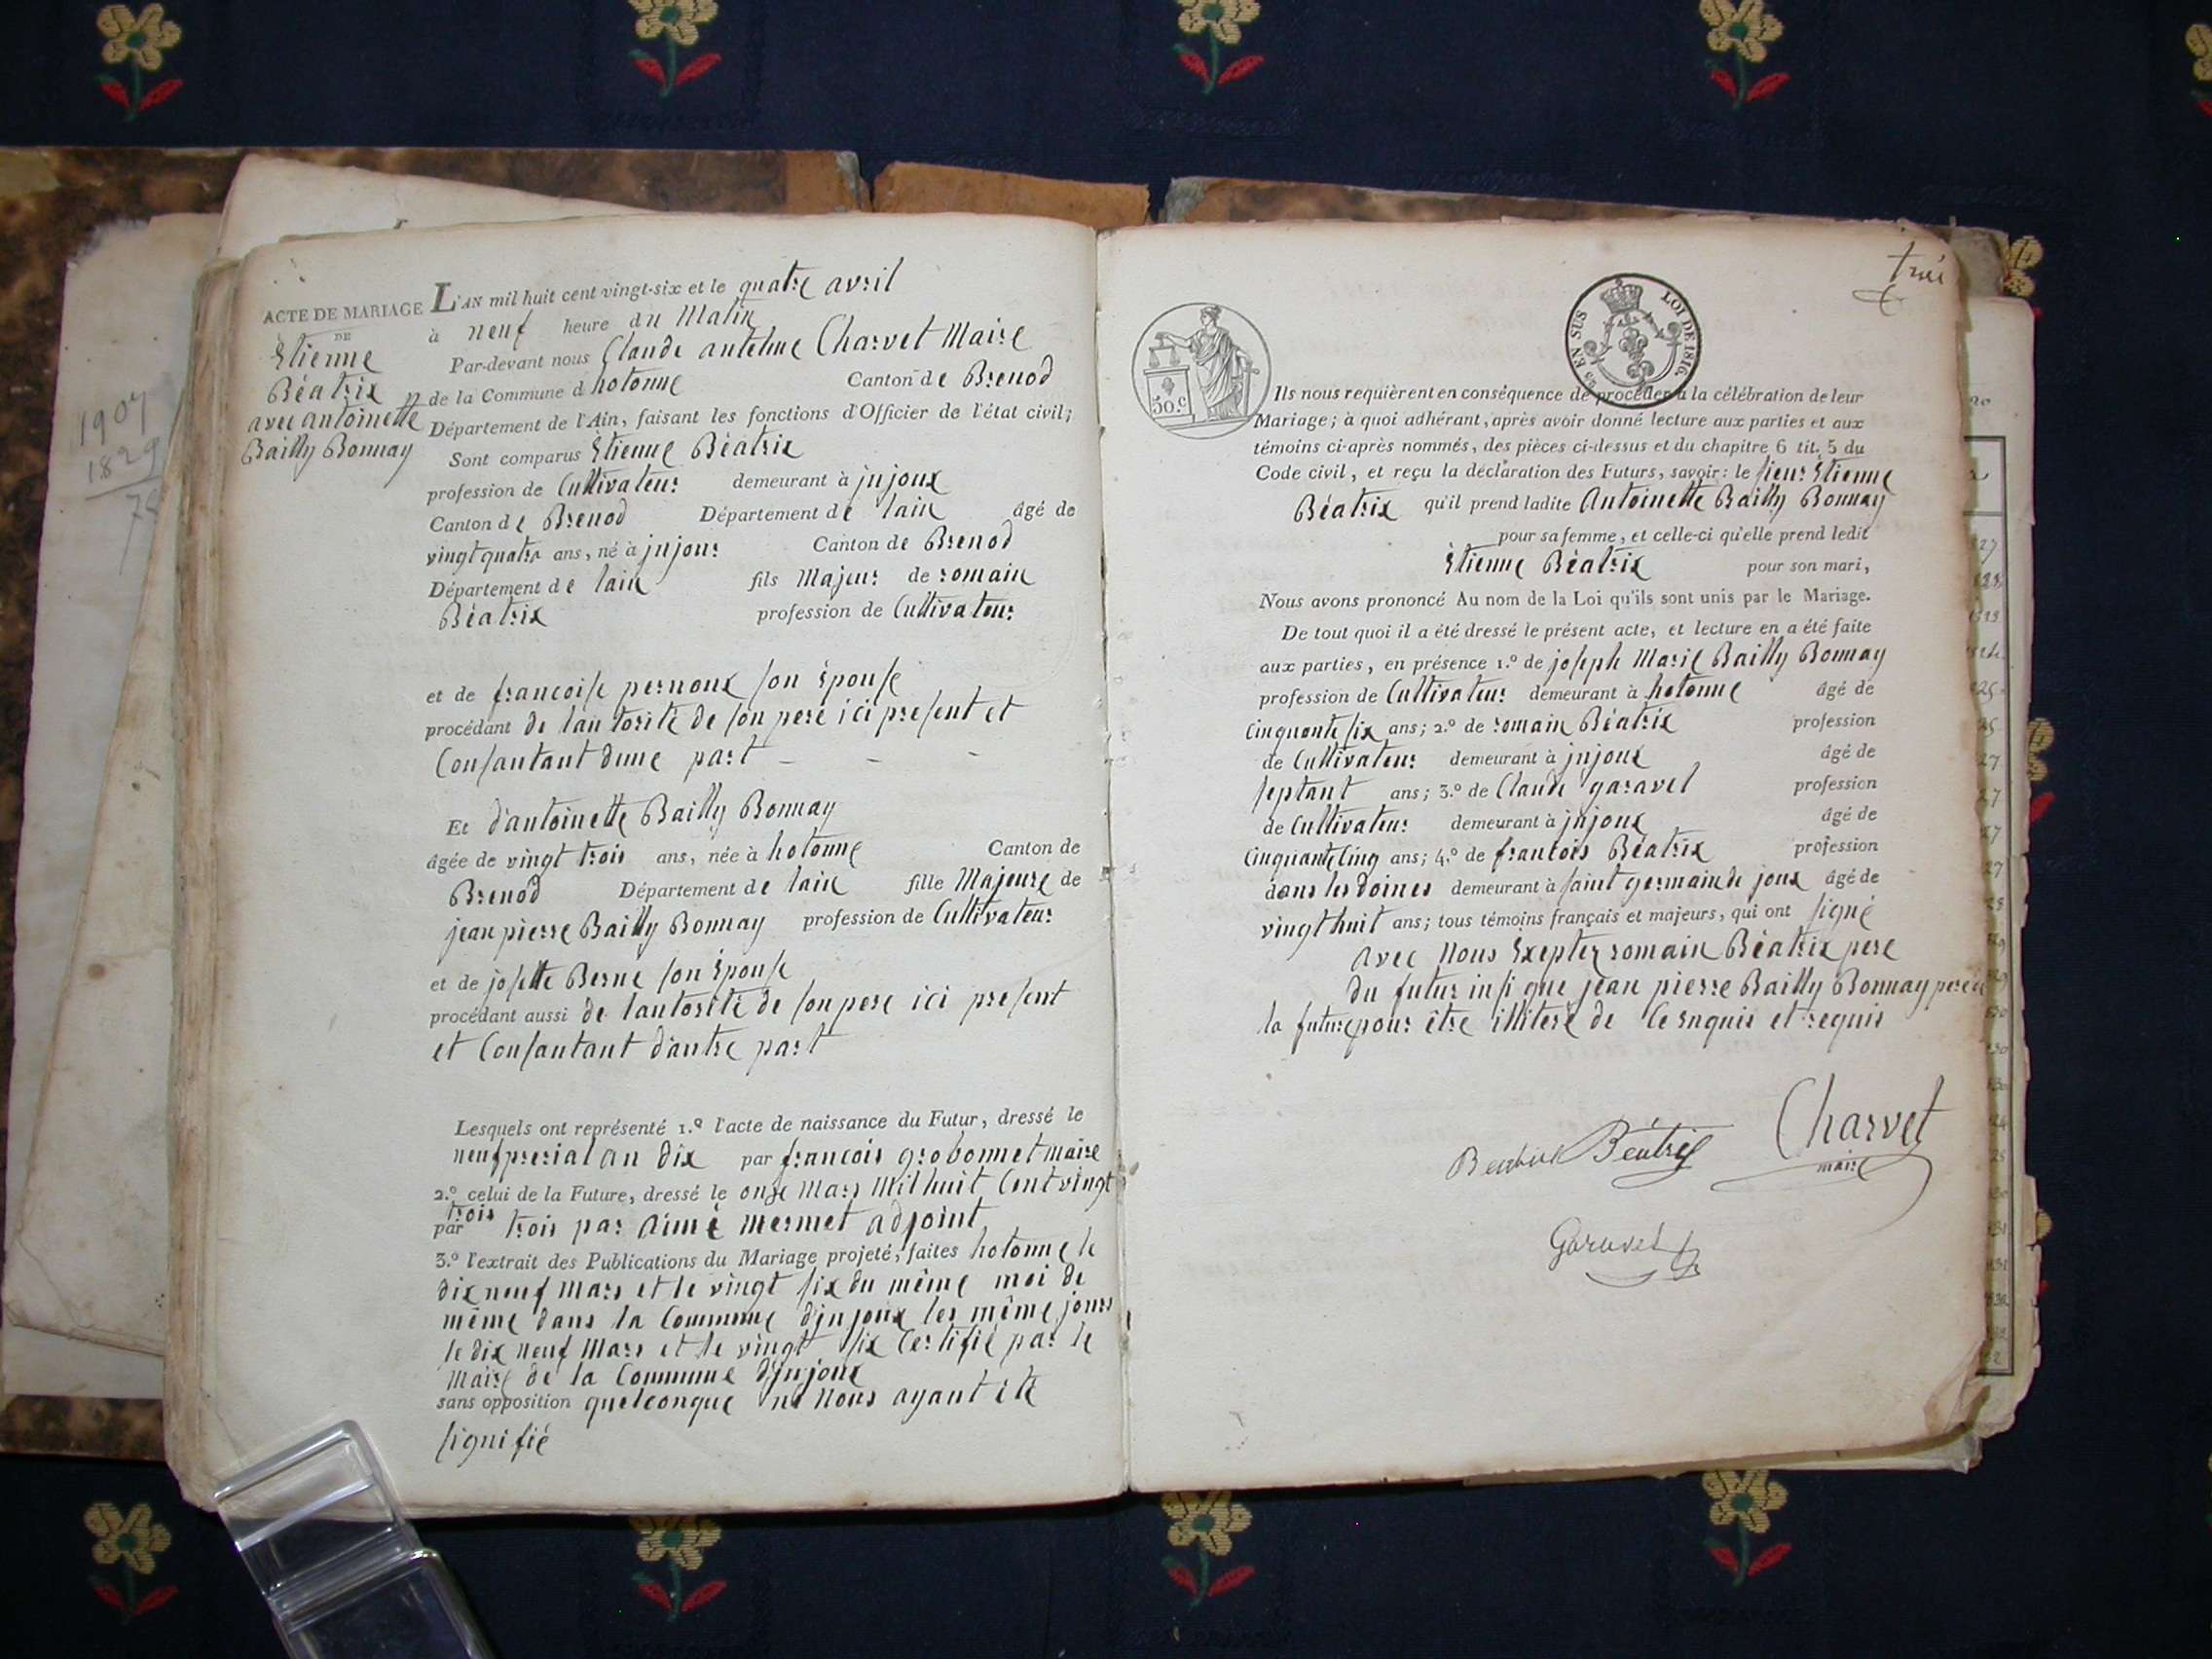 ACTE DE MARIAGE
DE
Etienne
Béatrix
avec antoinette
Bailly Bonnay
1907
1829
L'AN mil huit cent vingt-six et le quatre avril
à neuf heure du Matin
Par-devant nous Claude antelme Charvet Maire
de la Commune d hotonne Canton de Brenod
Département de l'Ain, faisant les fonctions d'Officier de l'état civil;
Sont comparus Etienne Béatrix
profession de Cultivateur demeurant à jnjoux
Canton de Brenod Département de lain âgé de
vingt quatre ans, né à jnjoux Canton de Brenod
Département de lain fils Majeur de romain
Béatrix profession de Cultivateur
et de francoise pernoux son épouse
procédant de lautorité de son pere ici present et
Consantant dune part
Et d'antoinette Bailly Bonnay
âgée de vingt trois ans, née à hotonne Canton de
Brenod Département de lain fille Majeure de
jean pierre Bailly Bonnay profession de Cultivateur
et de josette Berne son épouse
procédant aussi de lautorité de son pere ici present
et Consantant dautre part
Lesquels ont représenté 1.º l'acte de naissance du Futur, dressé le
neuf prerial an dix par francois grobonnet maire
2.º celui de la Future, dressé le onze Mars Mil huit Cent vingt
trois
par trois par Aimé Mermet adjoint
3.º l'extrait des Publications du Mariage projeté, faites hotonne le
dix neuf Mars et le vingt six du même moi de
même dans la Commune d'jnjoux les même jours
le dix neuf Mars et le vingt six Certifié par le
Maire de la Commune d'jnjoux
sans opposition quelconque ne Nous ayant été
signifié
50.c
EN SUS LOI DE 1816
Ils nous requièrent en conséquence de procéder à la célébration de leur
Mariage; à quoi adhérant, après avoir donné lecture aux parties et aux
témoins ci-après nommés, des pièces ci-dessus et du chapitre 6 tit. 5 du
Code civil, et reçu la déclaration des Futurs, savoir: le sieur Etienne
Béatrix qu'il prend ladite Antoinette Bailly Bonnay
pour sa femme, et celle-ci qu'elle prend ledit
Etienne Béatrix pour son mari,
Nous avons prononcé Au nom de la Loi qu'ils sont unis par le Mariage.
De tout quoi il a été dressé le présent acte, et lecture en a été faite
aux parties, en présence 1.º de joseph Marie Bailly Bonnay
profession de Cultivateur demeurant à hotonne âgé de
Cinquante six ans; 2.º de romain Béatrix profession
de Cultivateur demeurant à jnjoux âgé de
septant ans; 3.º de Claude garavel profession
de Cultivateur demeurant à jnjoux âgé de
Cinquante Cinq ans; 4.º de francois Béatrix profession
dans les doines demeurant à saint germain de joux âgé de
vingt huit ans; tous témoins français et majeurs, qui ont signé
avec Nous Exeptez romain Béatrix pere
du futur insi que jean pierre Bailly Bonnay pere de
la future pour être illiteré de Ce enquis et requis
Béatrix Charvet
maire
Garavel